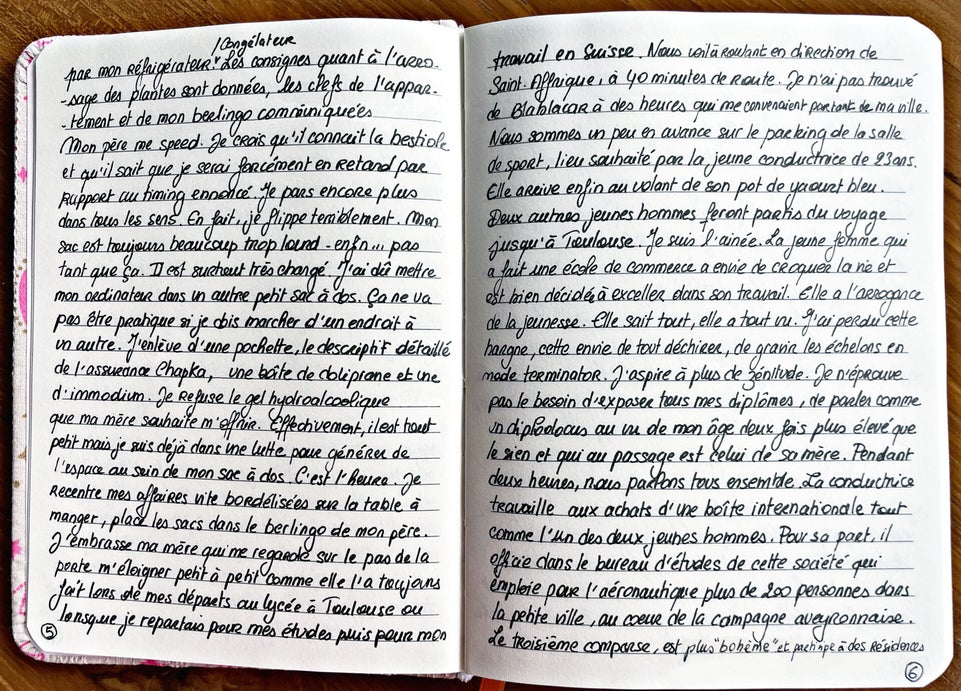 /Congélateur
par mon réfrigérateur. Les consignes quant à l'arro-
-sage des plantes sont données, les clefs de l'appar-
-tement et de mon berlingo communiquées
Mon père me speed. Je crois qu'il connaît la bestiole
et qu'il sait que je serai forcément en retard par
rapport au timing ennoncé. Je pars encore plus
dans tous les sens. En fait, je flippe terriblement. Mon
sac est toujours beaucoup trop lourd - enfin... pas
tant que ça. Il est surtout très chargé. J'ai dû mettre
mon ordinateur dans un autre petit sac à dos. Ça ne va
pas être pratique si je dois marcher d'un endroit à
un autre. J'enlève d'une pochette, le descriptif détaillé
de l'assurance Chapka, une boîte de doliprane et une
d'immodium. Je refuse le gel hydroalcoolique
que ma mère souhaite m'offrir. Effectivement, il est tout
petit mais je suis déjà dans une lutte pour générer de
l'espace au sein de mon sac à dos. C'est l'heure. Je
recentre mes affaires vite bordélisées sur la table à
manger, place les sacs dans le berlingo de mon père.
J'embrasse ma mère qui me regarde sur le pas de la
porte m'éloigner petit à petit comme elle l'a toujours
fait lors de mes départs au lycée à Toulouse ou
lorsque je repartais pour mes études puis pour mon
5
travail en Suisse. Nous voilà roulant en direction de
Saint-Affrique, à 40 minutes de route. Je n'ai pas trouvé
de Blablacar à des heures qui me convenaient partant de ma ville.
Nous sommes un peu en avance sur le parking de la salle
de sport, lieu souhaité par la jeune conductrice de 23 ans.
Elle arrive enfin au volant de son pot de yaourt bleu.
Deux autres jeunes hommes feront partis du voyage
jusqu'à Toulouse. Je suis l'ainée. La jeune femme qui
a fait une école de commerce a envie de croquer la vie et
est bien décidée à exceller dans son travail. Elle a l'arrogance
de la jeunesse. Elle sait tout, elle a tout vu. J'ai perdu cette
hargne, cette envie de tout déchirer, de gravir les échelons en
mode terminator. J'aspire à plus de zénitude. Je n'éprouve
pas le besoin d'exposer tous mes diplômes, de parler comme
un diplodocus au vu de mon âge deux fois plus élevé que
le sien et qui au passage est celui de sa mère. Pendant
deux heures, nous parlons tous ensemble. La conductrice
travaille aux achats d'une boîte internationale tout
comme l'un des deux jeunes hommes. Pour sa part, il
officie dans le bureau d'études de cette société qui
emploie pour l'aéronautique plus de 200 personnes dans
la petite ville, au coeur de la campagne aveyronnaise.
Le troisième comparse, est plus "bohème" et participe à des résidences
6